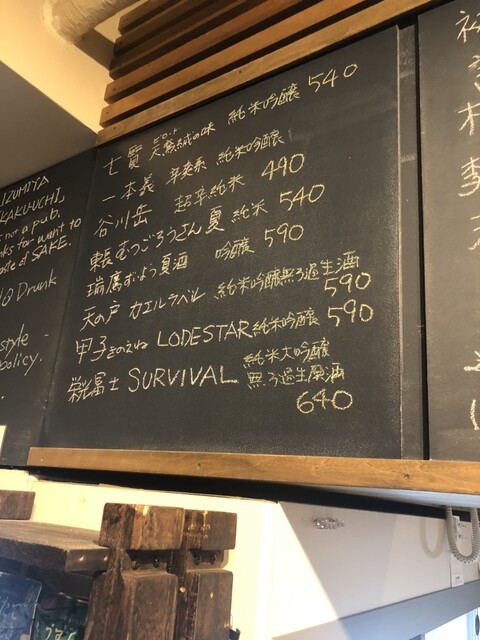 IZUMIYA
KAKUUCHI,
not a pub.
want to
taste of SAKE.
Drunk
style
policy.
七賢 天鵞絨の味 純米吟醸 540
一本義 辛爽系 純米吟醸
谷川岳 超辛純米 490
東長 むつごろうさん夏 純米 540
瑞鷹 ずよう夏酒 吟醸 590
天の戸 カエルラベル 純米吟醸無ろ過生酒
590
甲子きのえね LODESTAR 純米吟醸 590
栄光冨士 SURVIVAL 純米大吟醸
無ろ過生原酒
640